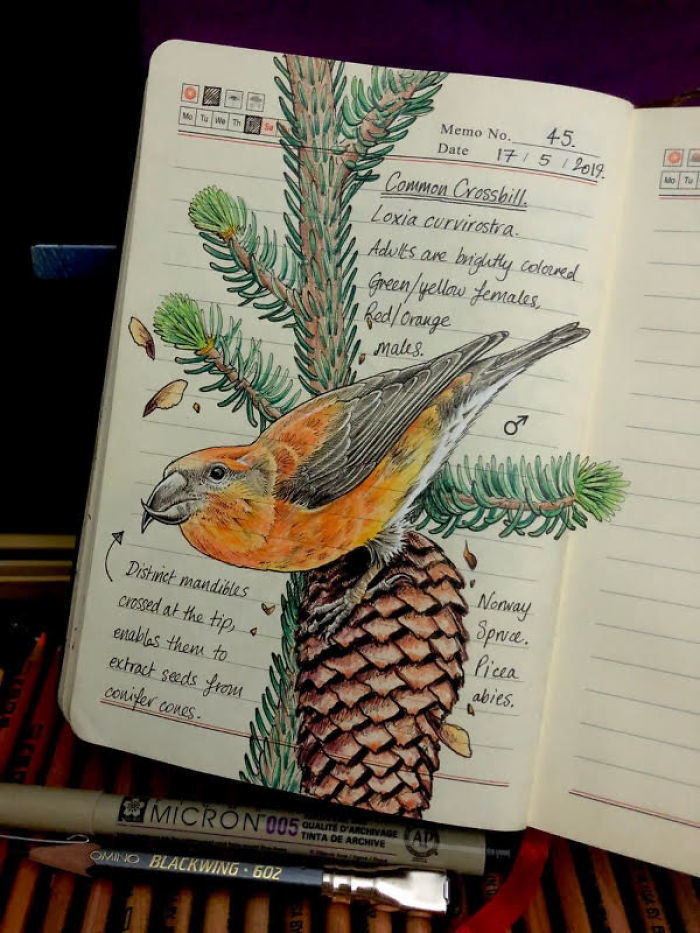 Mo Tu We Th Sa
Memo No. 45.
Date 17 / 5 / 2019.
Common Crossbill.
Loxia curvirostra.
Adults are brightly coloured
Green/yellow females,
Red/orange
males.
♂
Distinct mandibles
crossed at the tip,
enables them to
extract seeds from
conifer cones.
Norway
Spruce.
Picea
abies.
Mo Tu
MICRON 005
QUALITÉ D'ARCHIVAGE
TINTA DE ARCHIVE
AP
OMINO BLACKWING · 602